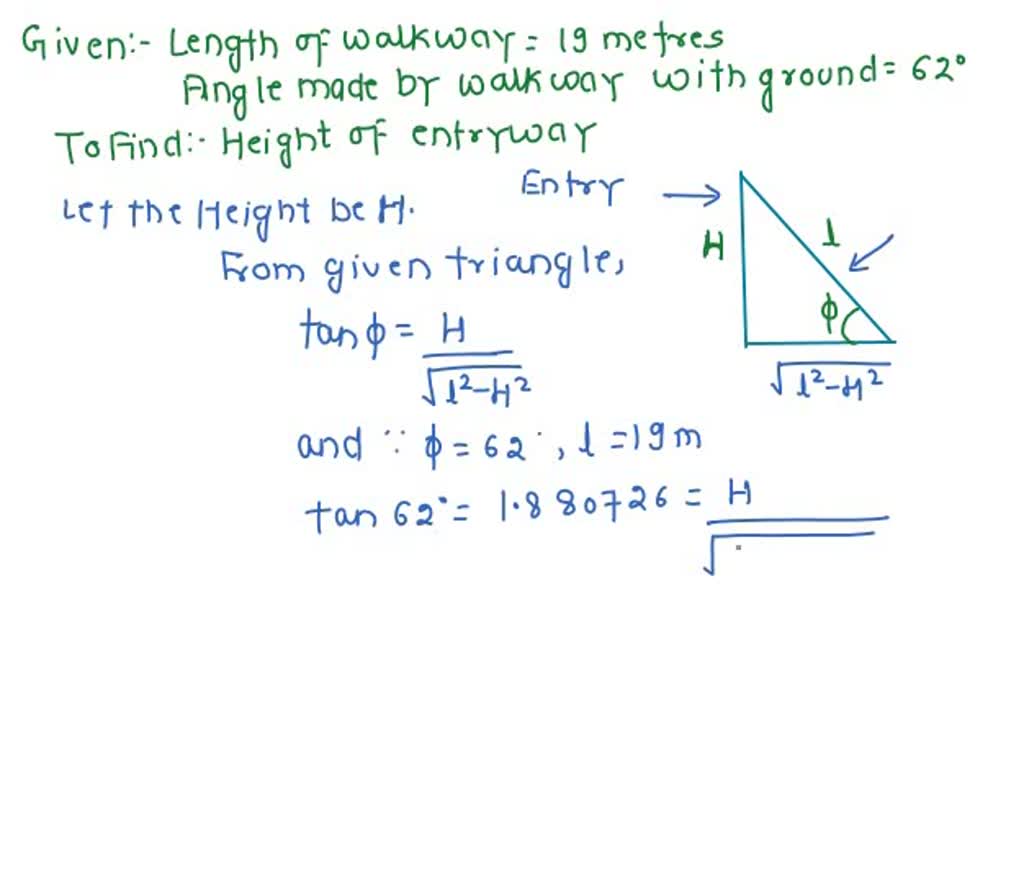 Given:- Length of walkway = 19 metres
Angle made by walkway with ground = 62°
To Find:- Height of entryway
Let the Height be H.
Entry →
From given triangle,
H
l
ϕ
√l²-H²
tan ϕ = H / √l²-H²
and ∵ ϕ = 62°, l = 19 m
tan 62° = 1.880726 = H / √